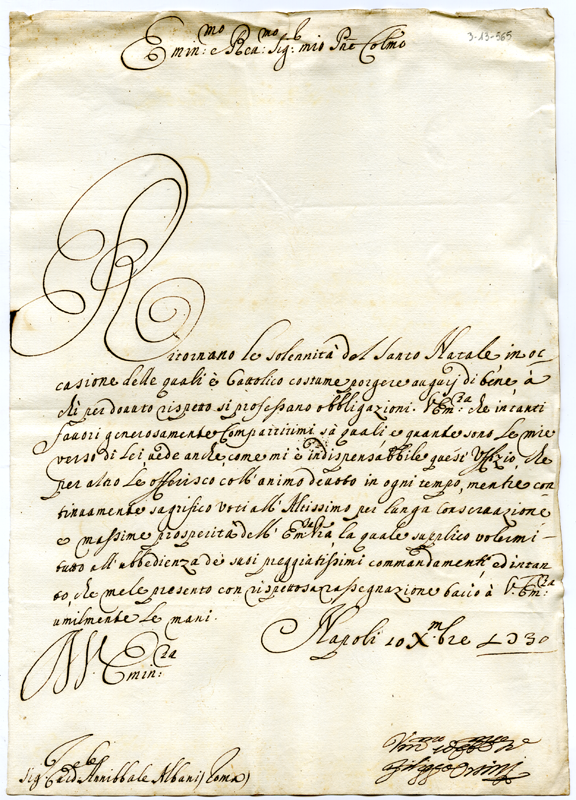 3-13-565
Emin:mo e Rea:mo Sig:r mio Pne Colmo
Ritornano le solennità del Santo Natale in oc-
casione delle quali è Cattolico costume porgere augurj di bene, à
chi per douuto rispetto si professano obbligazioni. V. Em:za che in tanti
fauori generosamente Compartitimi sà quali, e quante sono le mie
verso di Lei uede anche come mi è indispensabbile quest' Uffizio, che
per altro le offerisco coll' animo deuoto in ogni tempo, mentre con-
tinuamente sagrifico voti all' Altissimo per lunga Conseruazione
e massime prosperità dell' Em:za Vra, la quale supplico volermi
tutto all' ubbedienza de suoi preggiatissimi commandamenti, ed intan-
to, che mele presento con rispettosa rassegnazione bacio à V. Em:za
umilmente le mani.
Napoli 10 Xmbre 1730
V. Emin:za
Sig:r Card:le Annibbale Albani (Roma)